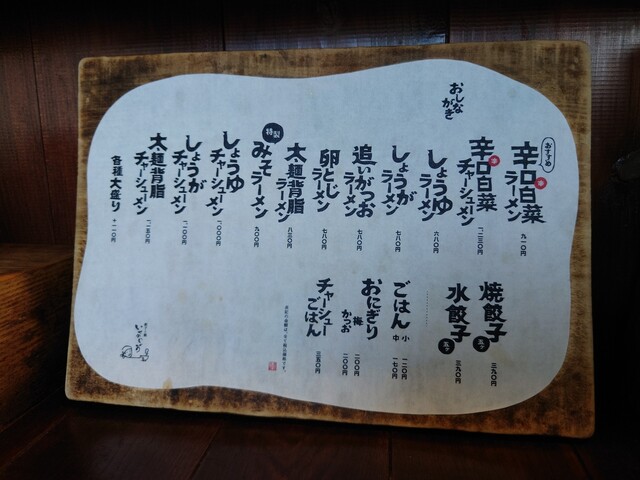 おしながき
おすすめ
辛口白菜ラーメン 九一〇円
辛口白菜チャーシューメン 一二三〇円
しょうゆラーメン 六八〇円
しょうがラーメン 七八〇円
追いがつおラーメン 七八〇円
卵とじラーメン 七八〇円
太麺背脂ラーメン 八三〇円
特製 みそラーメン 九〇〇円
しょうゆチャーシューメン 一〇〇〇円
しょうがチャーシューメン 一一〇〇円
太麺背脂チャーシューメン 一一五〇円
各種大盛り 十一〇円
焼餃子 五ケ 三九〇円
水餃子 五ケ 三九〇円
ごはん 小 一二〇円
中 一七〇円
おにぎり 梅 二〇〇円
かつお 二〇〇円
チャーシューごはん 三五〇円